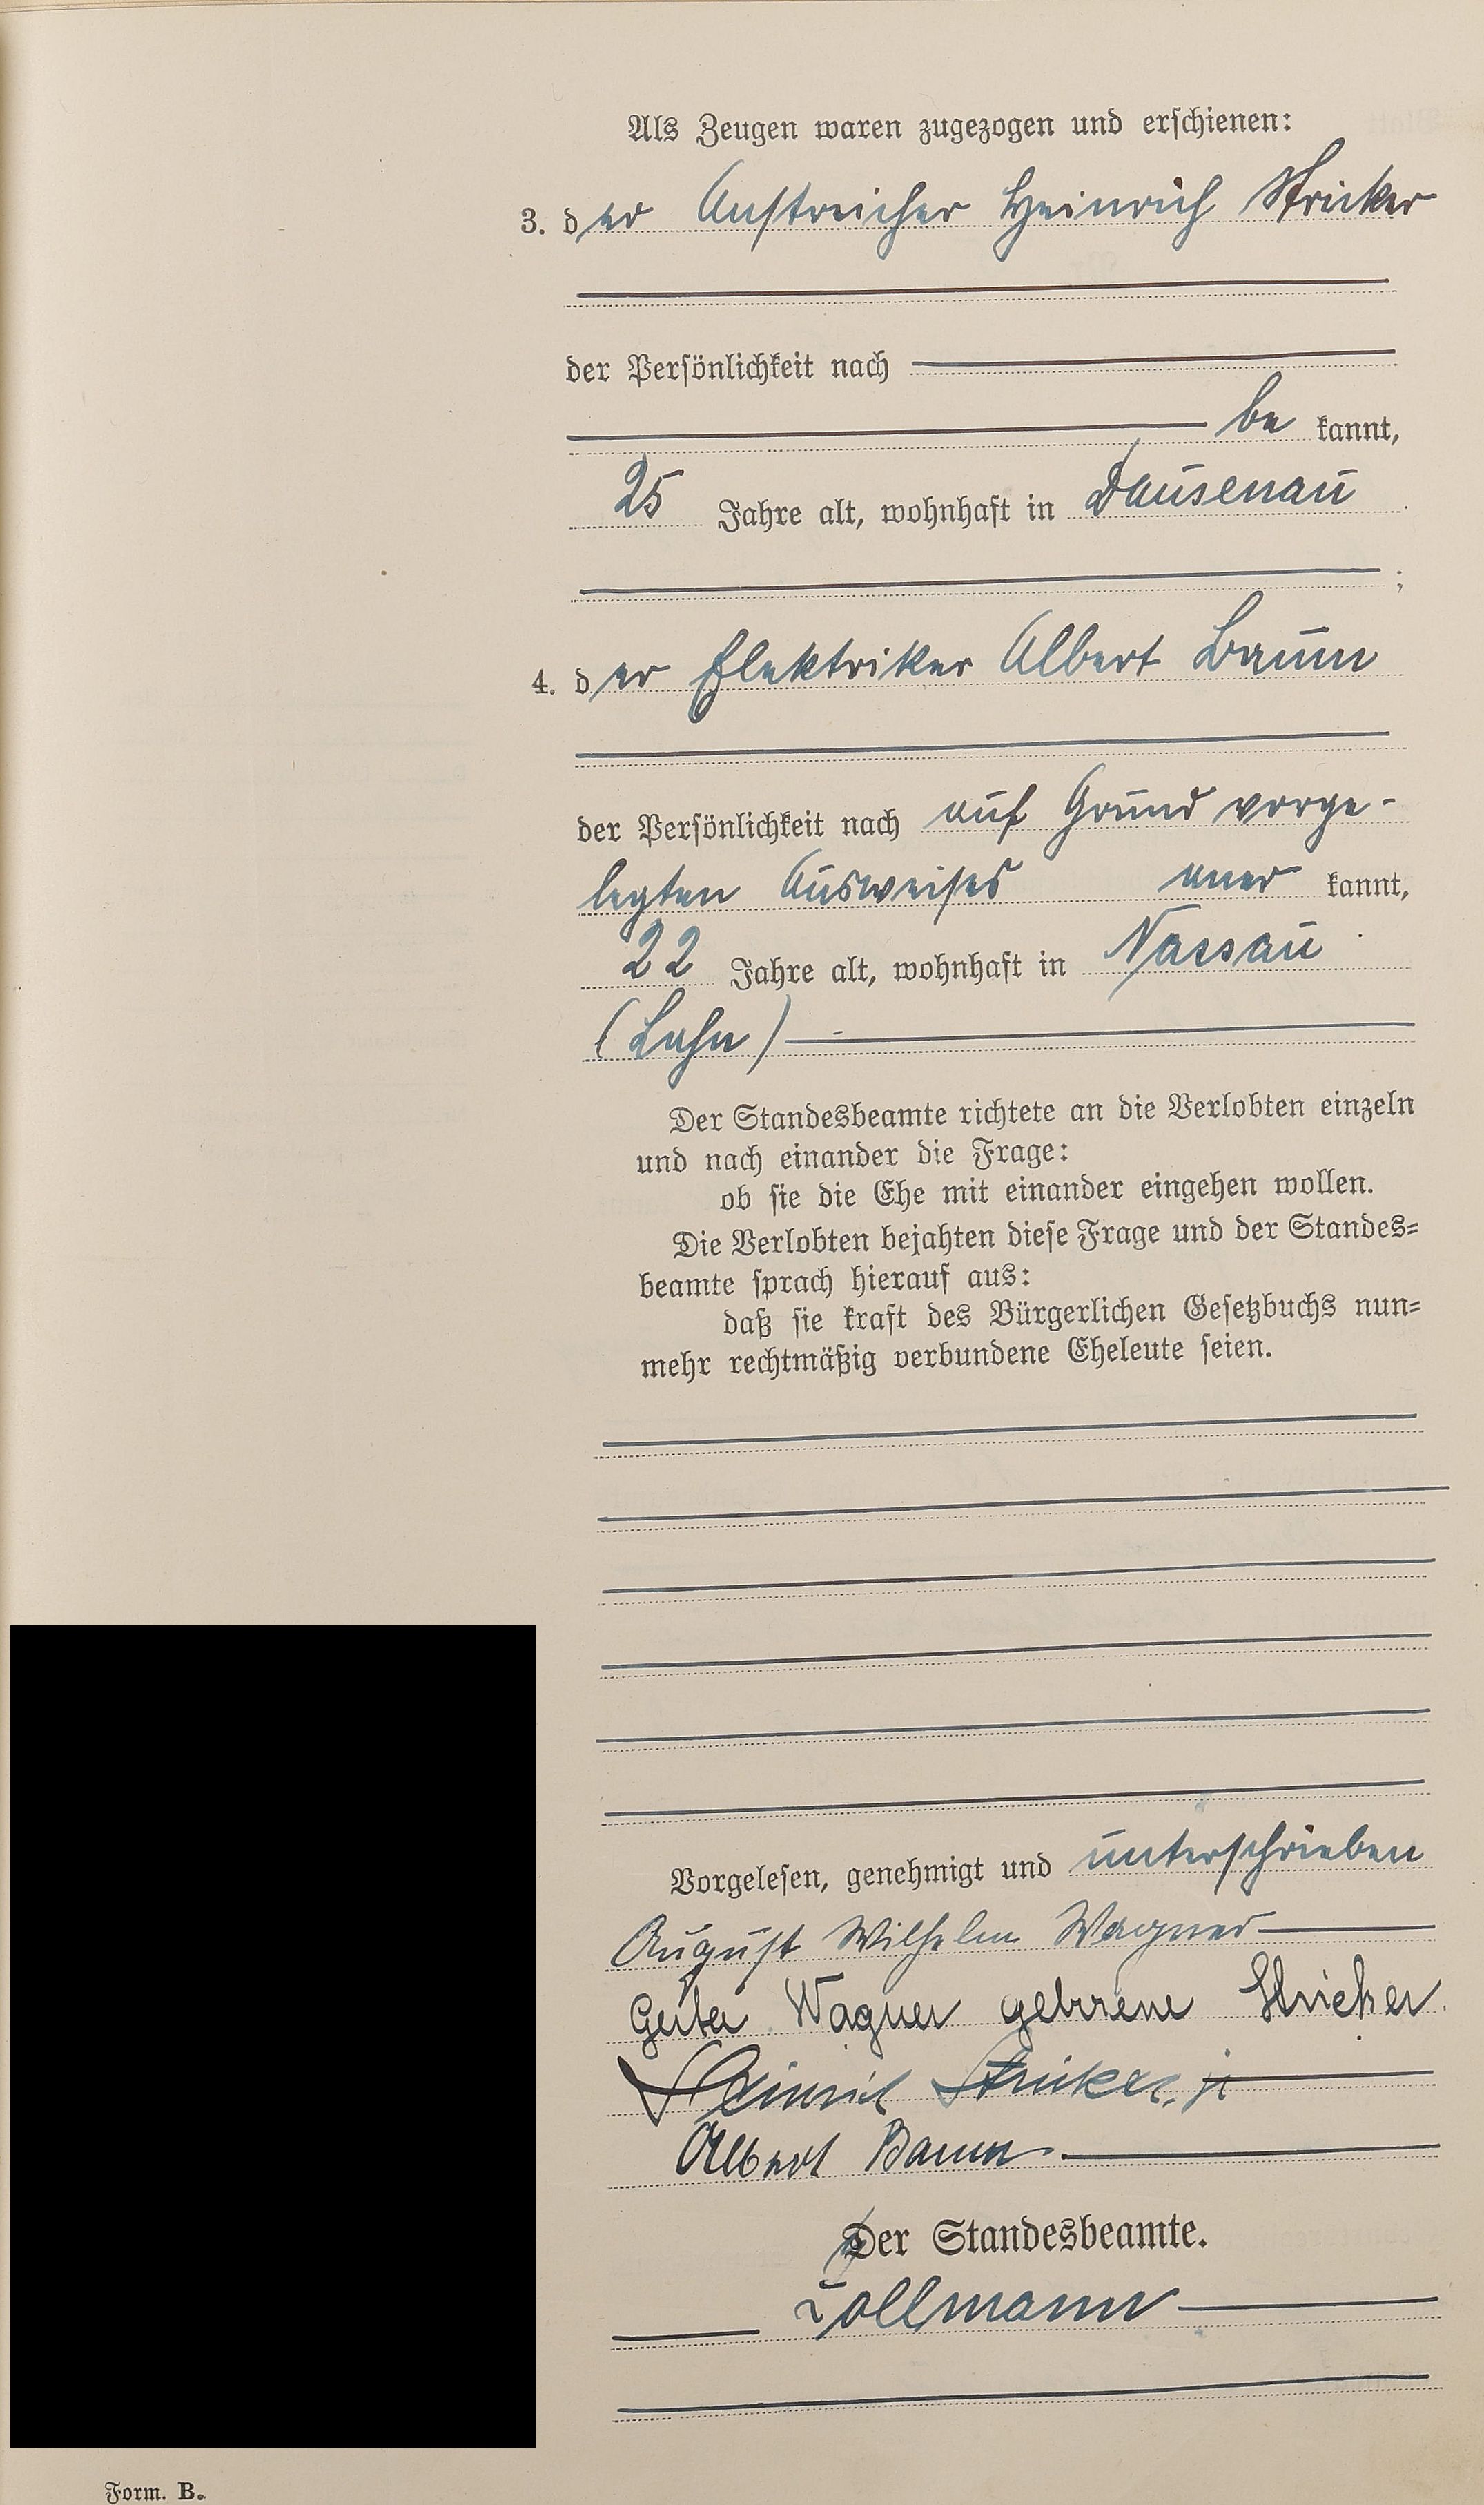 Als Zeugen waren zugezogen und erschienen:
3. der Anstreicher Heinrich Stricker
der Persönlichkeit nach
be kannt,
25 Jahre alt, wohnhaft in Dausenau
;
4. der Elektriker Albert Baum
der Persönlichkeit nach auf Grund vorge-
legten Ausweises aner kannt,
22 Jahre alt, wohnhaft in Nassau
(Lahn)
Der Standesbeamte richtete an die Verlobten einzeln
und nach einander die Frage:
ob sie die Ehe mit einander eingehen wollen.
Die Verlobten bejahten diese Frage und der Standes=
beamte sprach hierauf aus:
daß sie kraft des Bürgerlichen Gesetzbuchs nun=
mehr rechtmäßig verbundene Eheleute seien.
Vorgelesen, genehmigt und unterschrieben
August Wilhelm Wagner
Wagner geborene Stricker.
Heinrich Stricker, jr
Albert Baum
Der Standesbeamte.
Zollmann
Form. B.